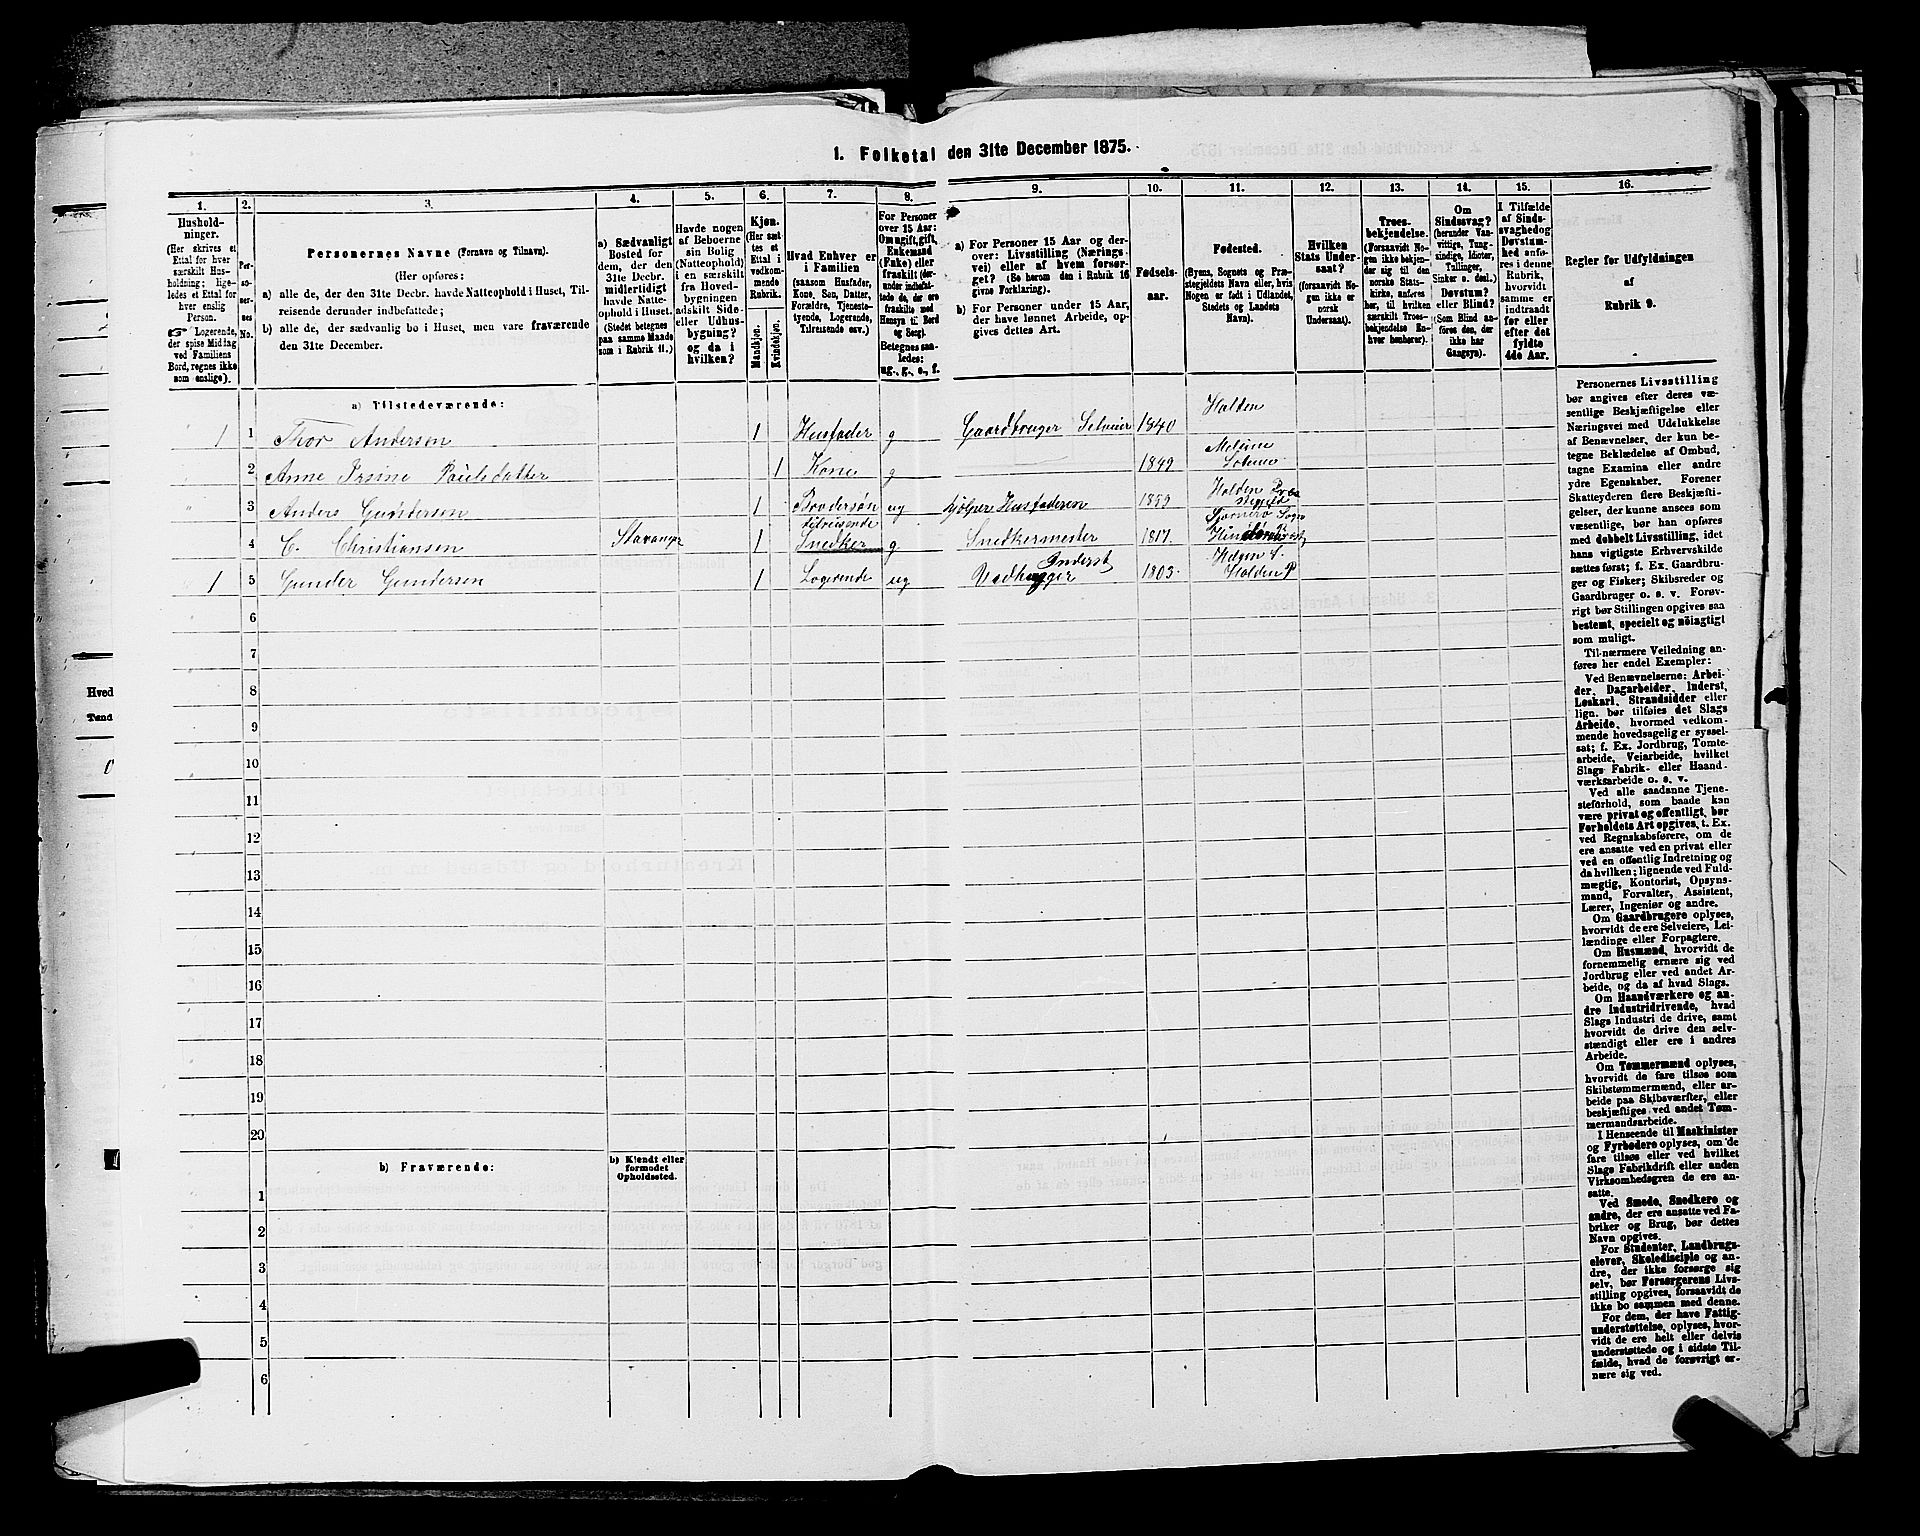 1. Folketal den 31te December 1875.
1. 2. 3. 4. 5. 6. 7. 8. 9. 10. 11. 12. 13. 14. 15. 16.
Hushold-
ninger.
(Her skrives et
Ettal for hver
særskilt Hus-
holdning; lige-
ledes et Ettal for
hver enslig
Person.
Logerende,
der spise Middag
ved Familiens
Bord, regnes ikke
som enslige).
Per-
so-
ner-
nes
No.
Personernes Navne (Fornavn og Tilnavn).
(Her opføres:
a) alle de, der den 31te Decbr. havde Natteophold i Huset, Til-
reisende derunder indbefattede;
b) alle de, der sædvanlig bo i Huset, men vare fraværende
den 31te December.
a) Sædvanligt
Bosted for
dem, der den
31te Decbr.
midlertidigt
havde Natte-
ophold i Huset.
(Stedet betegnes
paa samme Maade
som i Rubrik 11.)
Havde nogen
af Beboerne
sin Bolig
(Natteophold)
i en særskilt
fra Hoved-
bygningen
adskilt Side-
eller Udhus-
bygning?
og da i
hvilken?
Kjøn.
(Her sæt-
tes et
Ettal i
vedkom-
mende
Rubrik.
Mandkjøn.
Kvindekjøn.
Hvad Enhver er
i Familien
(saasom Husfader,
Kone, Søn, Datter,
Forældre, Tjeneste-
tyende, Logerende,
Tilreisende osv.)
For Personer
over 15 Aar:
Om ugift, gift,
Enkemand
(Enke) eller
fraskilt (der-
under indbefat-
tede de, der ere
fraskilte med
Hensyn til Bord
og Seng).
Betegnes saa-
ledes:
ug., g., e., f.
a) For Personer 15 Aar og der-
over: Livsstilling (Nærings-
vei) eller af hvem forsør-
get? (Se herom den i Rubrik 16
givne Forklaring).
b) For Personer under 15 Aar,
der have lønnet Arbeide, op-
gives dettes Art.
Fødsels-
aar.
Fødested.
(Byens, Sognets og Præ-
stegjeldets Navn eller, hvis
Nogen er født i Udlandet,
Stedets og Landets
Navn).
Hvilken
Stats Under-
saat?
(forsaavidt No-
gen ikke er
norsk
Undersaat).
Troes-
bekjendelse.
(Forsaavidt No-
gen ikke bekjen-
der sig til den
norske Stats-
kirke, anføres
her, til hvilken
særskilt Troes-
bekjendelse En-
hver henhører).
Om
Sindssvag?
(herunder Van-
vittige, Tung-
sindige, Idioter,
Tullinger,
Sinker o. desl.)
Døvstum?
eller Blind?
(Som Blind an-
føres den, der
ikke har
Gangsyn).
I Tilfælde
af Sinds-
svaghed og
Døvstum-
hed anfø-
res i denne
Rubrik,
hvorvidt
samme er
indtraadt
før eller
efter det
fyldte
4de Aar.
Regler for Udfyldningen
af
Rubrik 9.
a) Tilstedeværende:
1 1 Thor Andersen 1 Husfader g Gaardbruger Selveier 1840 Holden
2 Anne Paulsdatter 1 Kone g 1849
3 Anders Gundersen 1 Brodersøn ug hjelper Husfaderen Holden
4 C. Christiansen Stavanger 1 tilreisende Snedker g Snedkermester 1817
1 5 Gunder Gundersen 1 Logerende ug Vedhugger Inderst 1803 Holden P
6
7
8
9
10
11
12
13
14
15
16
17
18
19
20
b) Fraværende:
b) Kjendt eller
formodet
Opholdssted.
1
2
3
4
5
6
Personernes Livsstilling
bør angives efter deres væ-
sentlige Beskjæftigelse eller
Næringsvei med Udelukkelse
af Benævnelser, der kun be-
tegne Beklædelse af Ombud,
tagne Examina eller andre
ydre Egenskaber. Forener
Skatteyderen flere Beskjæfti-
gelser, der kunne ansees som
væsentlige, bør han opføres
med dobbelt Livsstilling, idet
hans vigtigste Erhvervskilde
sættes først; f. Ex. Gaardbru-
ger og Fisker; Skibsreder og
Gaardbruger o. s. v. Forøv-
rigt bør Stillingen opgives saa
bestemt, specielt og nøiagtigt
som muligt.
Til nærmere Veiledning an-
føres her endel Exempler:
Ved Benævnelserne: Arbei-
der, Dagarbeider, Inderst,
Løskarl, Strandsidder eller
lign. bør tilføies det Slags
Arbeide, hvormed vedkom-
mende hovedsagelig er syssel-
sat; f. Ex. Jordbrug, Tomte-
arbeide, Veiarbeide, hvilket
Slags Fabrik- eller Haand-
værksarbeide o. s. v.
Ved alle saadanne Tjene-
steforhold, som baade kan
være privat og offentligt, bør
Forholdets Art opgives, t. Ex.
ved Regnskabsførere, om de
ere ansatte ved en privat eller
ved en offentlig Indretning og
da hvilken; lignende ved Fuld-
mægtig, Kontorist, Opsyns-
mand, Forvalter, Assistent,
Lærer, Ingeniør og andre.
Om Gaardbrugere oplyses,
hvorvidt de ere Selveiere, Lei-
lændinge eller Forpagtere.
Om Husmænd, hvorvidt de
fornemmelig ernære sig ved
Jordbrug eller ved andet Ar-
beide, og da af hvad Slags.
Om Haandværkere og an-
dre Industridrivende, hvad
Slags Industri de drive, samt
hvorvidt de drive den selv-
stændigt eller ere i andres
Arbeide.
Om Tømmermænd oplyses,
hvorvidt de fare tilsøs som
Skibstømmermænd, eller ar-
beide paa Skibsværfter, eller
beskjæftiges ved andet Tøm-
mermandsarbeide.
I Henseende til Maskinister
og Fyrbødere oplyses, om de
fare tilsøs eller ved hvilket
Slags Fabrikdrift eller anden
Virksomhedsgren de ere an-
satte.
Ved Smede, Snedkere og
andre, der ere ansatte ved Fa-
briker og Brug, bør dettes
Navn opgives.
For Studenter, Landbrugs-
elever, Skoledisciple og an-
dre, der ikke forsørge sig
selv, bør Forsørgerens Livs-
stilling opgives, forsaavidt de
ikke bo sammen med denne.
For dem, der have Fattig-
understøttelse, oplyses, hvor-
vidt de ere helt eller delvis
understøttede og i sidste Til-
fælde, hvad de forøvrigt er-
nære sig ved.
Hved
Tønd
0